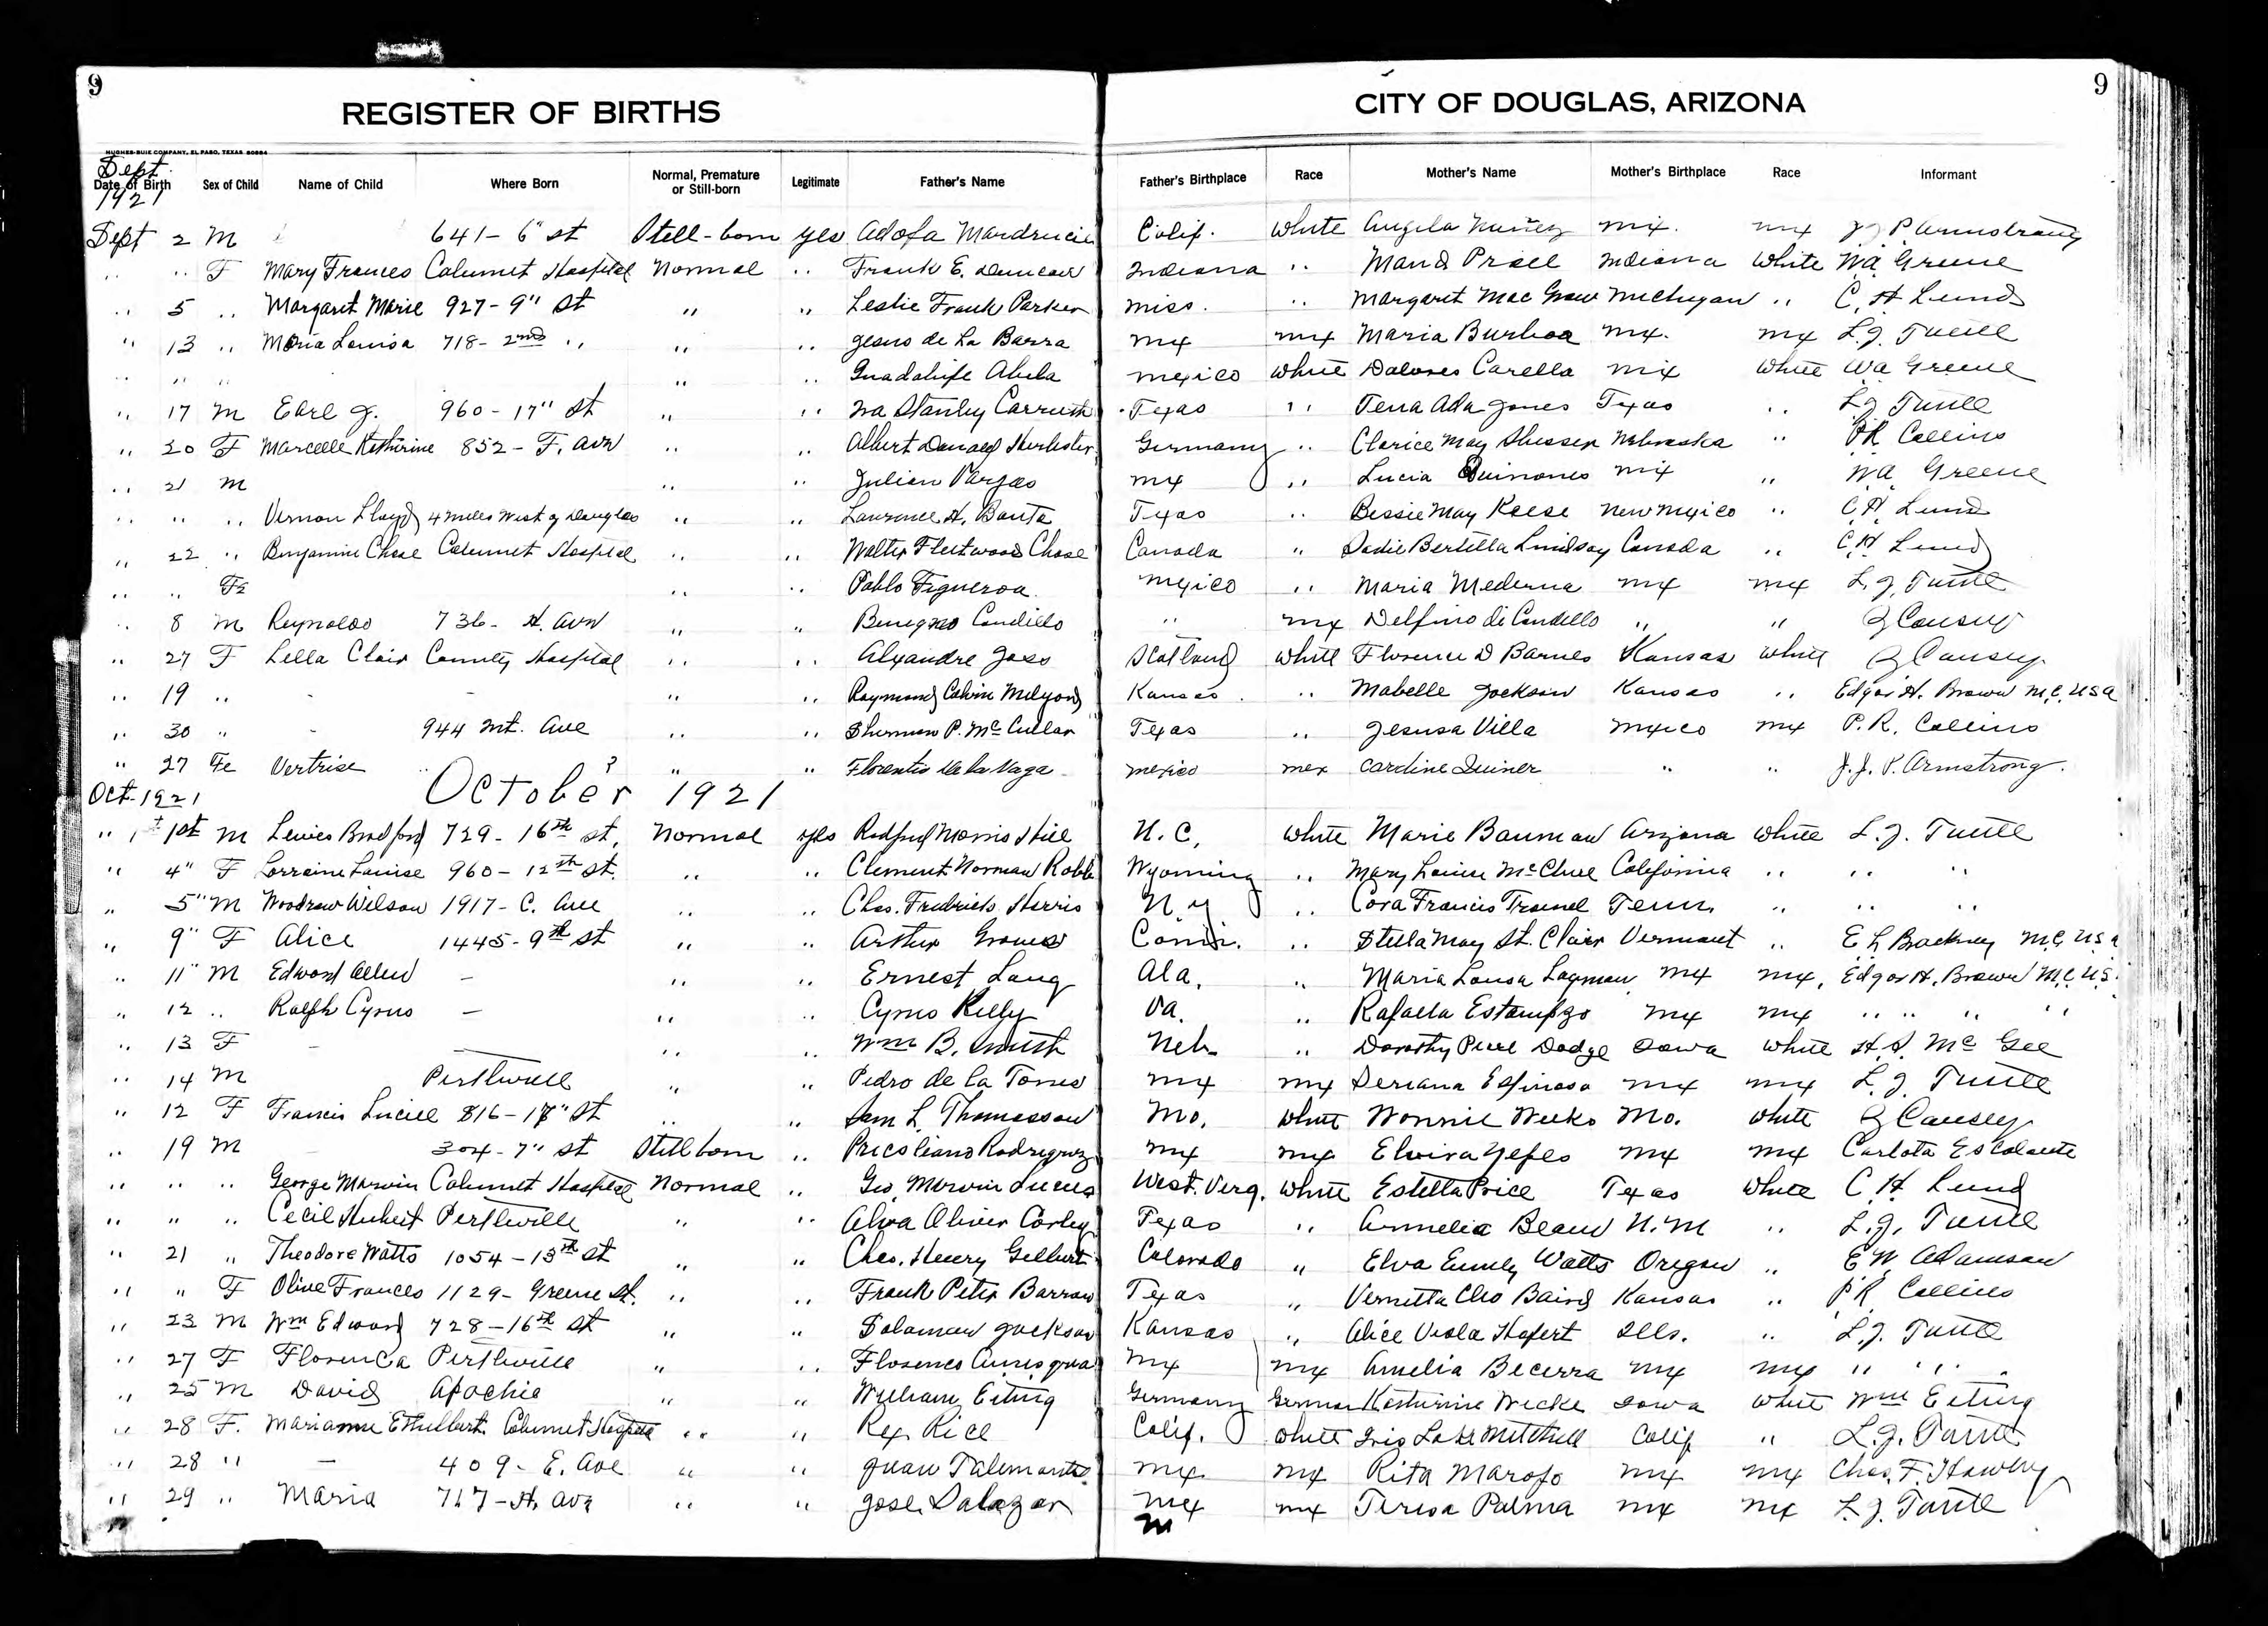 9
9
REGISTER OF BIRTHS
CITY OF DOUGLAS, ARIZONA
HUGHES-BUIE COMPANY, EL PASO, TEXAS
Sept.
1921
Date of Birth Sex of Child Name of Child Where Born Normal, Premature or Still-born Legitimate Father's Name Father's Birthplace Race Mother's Name Mother's Birthplace Race Informant
Sept 2 M 641- 6" st Still-born yes Calif. white Angela Nuñez mx. mx P Armstrong
" " F Mary Frances Calumet Hospital Normal " Frank E. Duncan Indiana " Maud Indiana white WA Greene
" 5 " Margaret Marie 927- 9" St " " Leslie Frank Parker Miss. " Margaret Mac Michigan " C. H. Lund
" 13 " Maria Louisa 718- 2nd " " " Jesus de La Barra mx mx Maria Burboa mx. mx L.J. Tuttle
" " " " " Guadalupe Mexico white Dolores Carella mx white WA Greene
" 17 M Earl J. 960- 17" St " " Ira Stanley Texas " Ada Jones Texas " LJ Tuttle
" 20 F Marcelle Katherine 852- F. Ave " " Albert Donald Germany " Clarice May Nebraska " PR Collins
" 21 M " " Julian Vargas mx " Lucia Quinones mx " WA Greene
" " " Vernon Lloyd 4 miles West of Douglas " " Lawrence H. Banta Texas " Bessie May Keese New Mexico " C.H. Lund
" 22 " Benjamin Chase Calumet Hospital " " Walter Fleetwood Chase Canada " Sadie Bertella Lindsay Canada " C.H. Lund
" " Fe " " Pablo Figueroa Mexico " Maria mx mx L.J. Tuttle
" 8 M Reynaldo 736- H. Ave " " Benigno " mx Delfino di " " Causey
" 27 F Lella Clair County Hospital " " Alexandre Scotland white Florence D Barnes Kansas white Causey
" 19 " - - " " Raymond Calvin Kansas " Mabelle Jackson Kansas " Edgar H. Brown M.C. USA
" 30 " - 944 Mt. Ave " " Sherman P. McCullar Texas " Jesusa Villa Mexico mx P.R. Collins
" 27 Fe Vertrise " ? " " Florentio De la Vaga Mexico mex Caroline " " J.J.P. Armstrong.
Oct. 1921 October 1921
" 1st M Bradford 729- 16th st. Normal yes Morris Hill N.C. white Marie Bauman Arizona white L.J. Tuttle
" 4" F Lorraine Louise 960- 12th st. " " Clement Norman Robb Wyoming " Mary Louise McClure California " " "
" 5" M Woodrow Wilson 1917- C. Ave " " Chas. Fredrick Harris N.Y " Cora Francis Tenn. " " "
" 9" F Alice 1445- 9th st " " Arthur Groves Conn. " Stella May St. Clair Vermont " E L M.C. USA
" 11" M Edward Allen - " " Ernest Lang Ala. " Maria Lousa Layman mx mx. Edgar H. Brown M.C. U.S.
" 12 " Ralph Cyrus - " " Cyrus Kelly Va. " Rafaela mx mx " " " "
" 13 F - " " Wm B. Smith Neb " Dorothy Dodge Iowa white H.S. McGee
" 14 M Pirtleville " " Pedro de la Torres mx mx Espinosa mx mx L.J. Tuttle
" 12 F Francis Lucille 816- 17" St " " Sam L. Thomasson Mo. white Weeks Mo. white Causey
" 19 M - 304- 7" st Still born " Rodriguez mx mx Elvira Yepes mx mx Carlota Escalante
" " " George Marvin Calumet Hospital Normal " Geo. Mervin Lucus West. Verg. white Estella Price Texas white C.H. Lund
" " " Cecil Hubert Pirtleville " " Alva Oliver Corley Texas " N.M " L.J. Tuttle
" 21 " Theodore Watts 1054- 13th st " " Chas. Henry Gilbert Colorado " Elva Emily Watts Oregon " E.W. Adamson
" " F Olive Frances 1129- Greene St. " " Frank Peter Barrow Texas " Vernetta Cleo Baird Kansas " PR Collins
" 23 M Wm Edward 728- 16th St " " Solaman Jackson Kansas " Alice Viola Ills. " L.J. Tuttle
" 27 F Florenca Pirtleville " " mx mx Amelia Becerra mx mx " " "
" 25 M David Apachie " " William Eiting Germany German Katherine Wecke Iowa white Wm Eiting
" 28 F. Marianne Calumet Hospital " " Rex Rice Calif. white Mitchell Calif " L.J. Tuttle
" 28 " - 409- E. Ave " " Juan mx. mx Rita mx mx Chas. F. Hawley
" 29 " Maria 717- H. Ave " " Jose Salazar mex mx Teresa Palma mx mx L.J. Tuttle
M